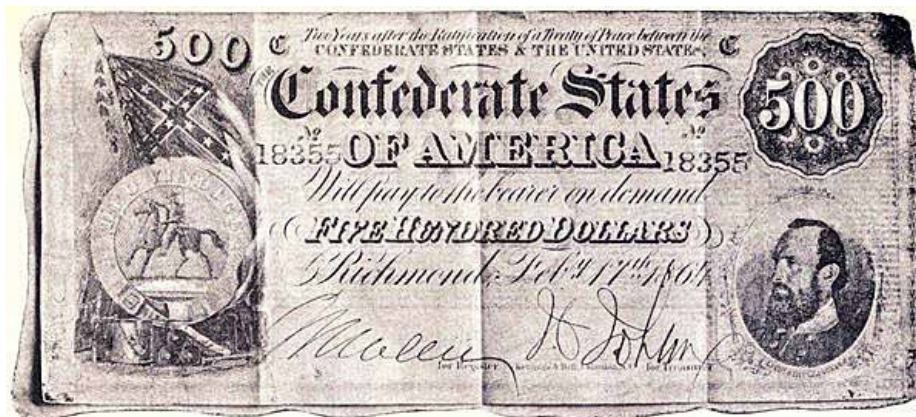 500 C Two Years after the Ratification of a Treaty of Peace between the C 500
CONFEDERATE STATES & THE UNITED STATES,
THE
Confederate States
Nº Nº
18355 OF AMERICA 18355
Will pay to the bearer on demand
FIVE HUNDRED DOLLARS
Richmond, Feb.y 17th 1864
for Register for Treasurer